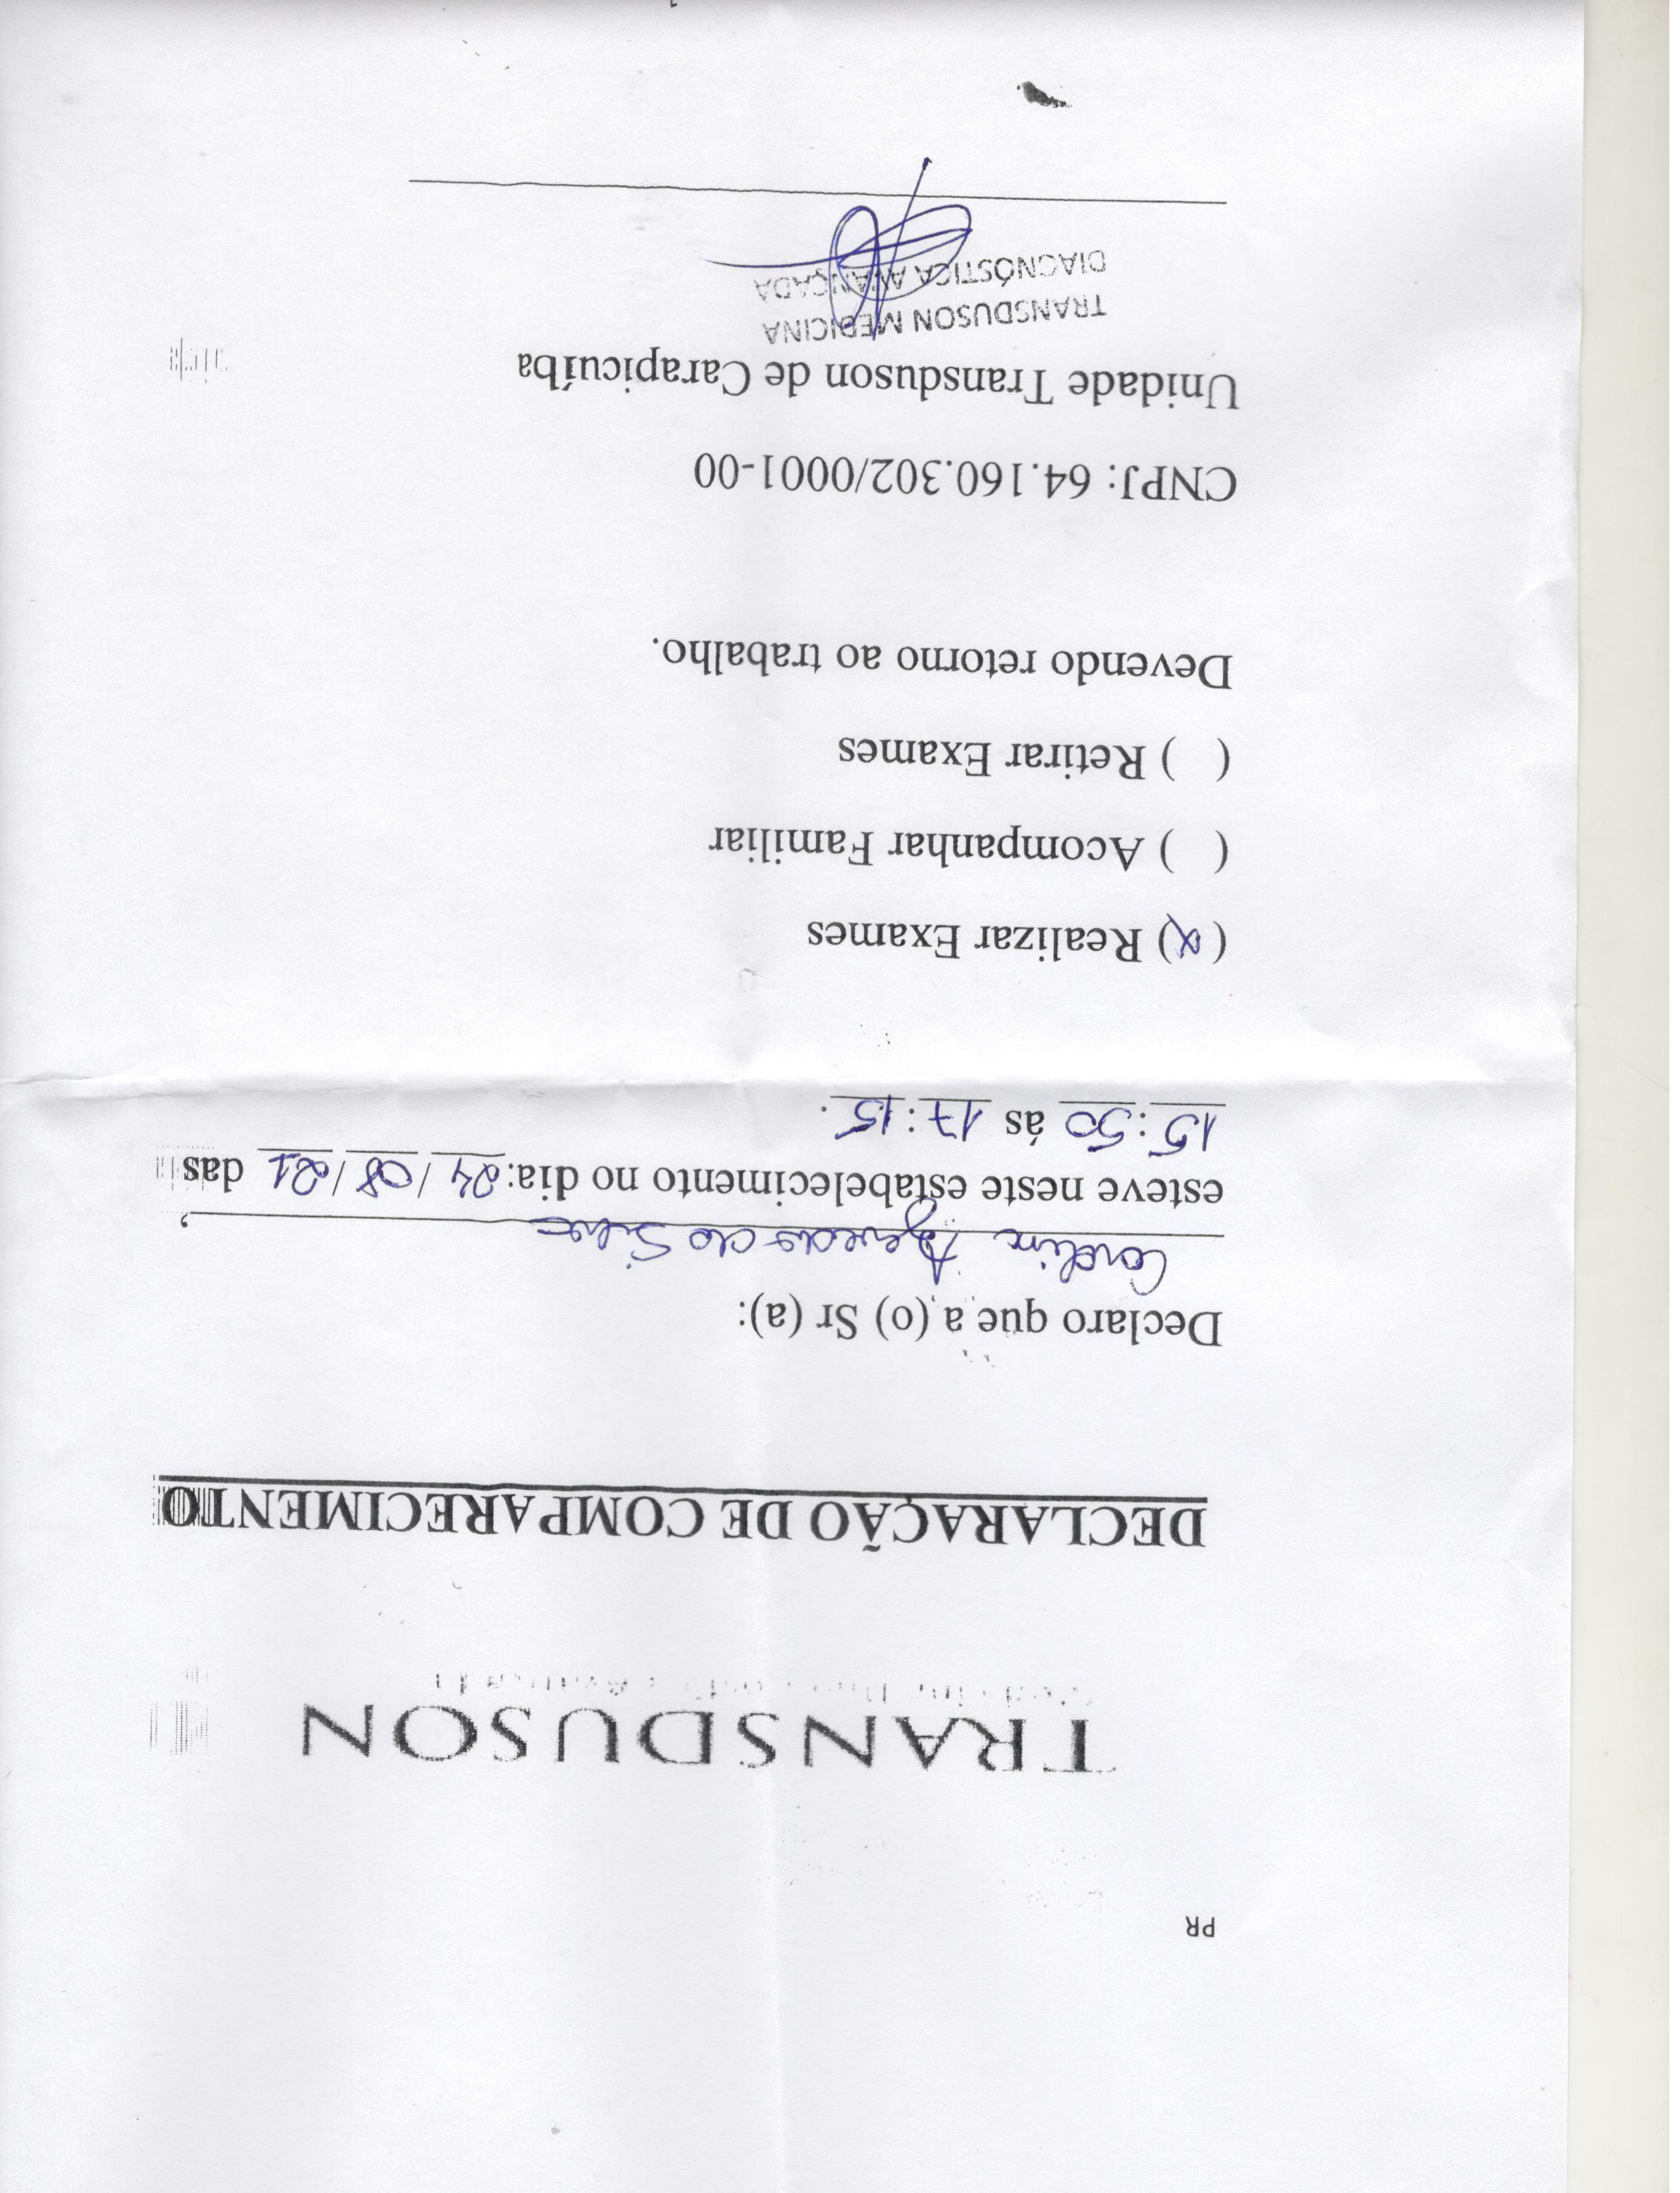 PR
TRANSDUSON
DECLARAÇÃO DE COMPARECIMENTO
Declaro que a (o) Sr (a):
da Silva,
esteve neste estabelecimento no dia: 24/08/21 das
15:50 ás 17:15.
(x) Realizar Exames
( ) Acompanhar Familiar
( ) Retirar Exames
Devendo retorno ao trabalho.
CNPJ: 64.160.302/0001-00
Unidade Transduson de Carapicuíba
TRANSDUSON MEDICINA
DIAGNÓSTICA AVANÇADA